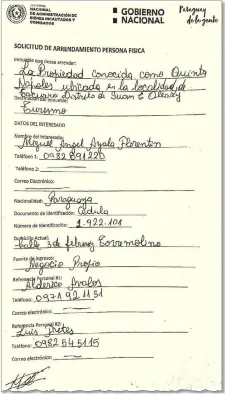 SECRETARÍA
NACIONAL
DE ADMINISTRACIÓN DE
BIENES INCAUTADOS Y
COMISADOS
GOBIERNO
NACIONAL
Paraguay
de la gente
SOLICITUD DE ARRENDAMIENTO PERSONA FISICA
Inmueble que desea arrendar:
La Propiedad conocida como Quinta
Napoles ubicada en la localidad de
Distrito de Juan E Oleary
Destinación del Inmueble:
Turismo
DATOS DEL INTERESADO
Nombre del Interesado:
Miguel Angel Ayala Florenton
Teléfono 1: 0982 891220
Teléfono 2:
Correo Electronico:
Nacionalidad: Paraguaya
Documento de Identificación: Cedula
Número de Identificación: 1.922.101
Domicilio Actual:
Calle 3 de febrero y Torremolino
Fuente de Ingreso:
Negocio Propio
Referencia Personal #1:
Alderico Avalos
Teléfono: 0971 921151
Correo electrónico:
Referencia Personal #2:
Luis
Teléfono: 0982 545115
Correo electrónico: